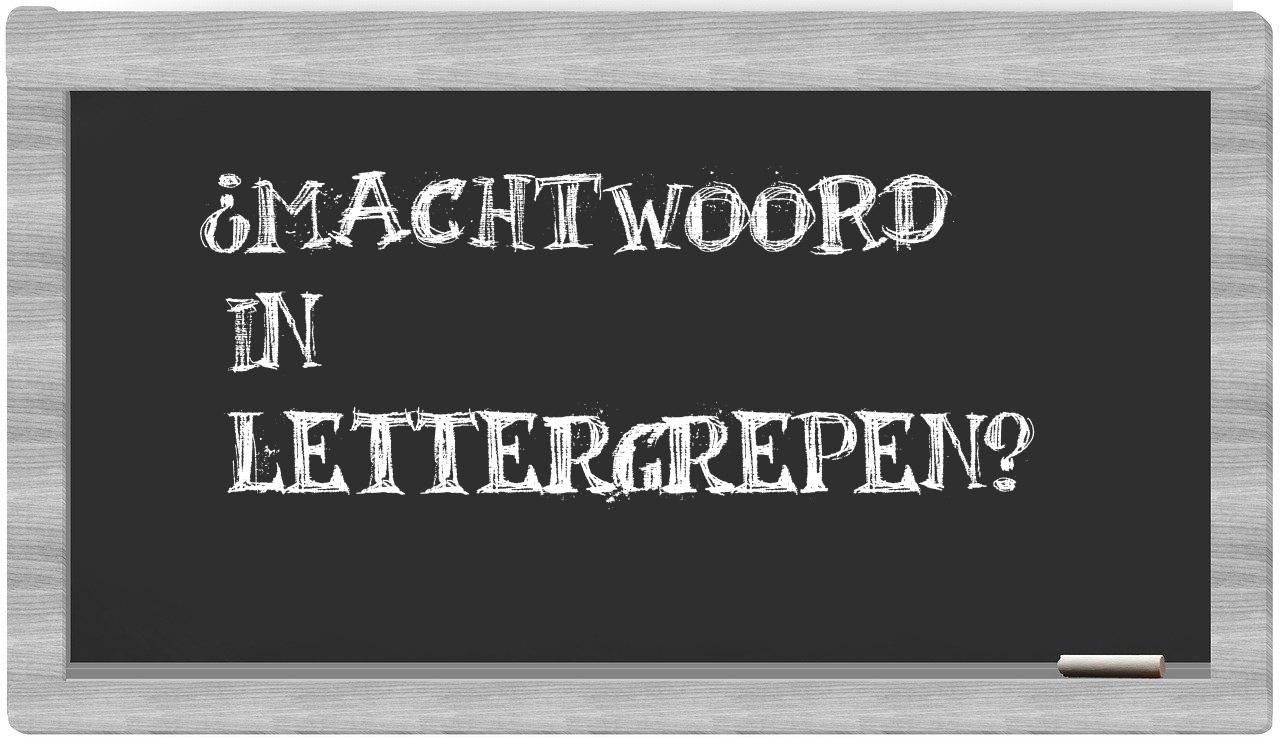 ¿MACHTWOORD
IN
LETTERGREPEN?